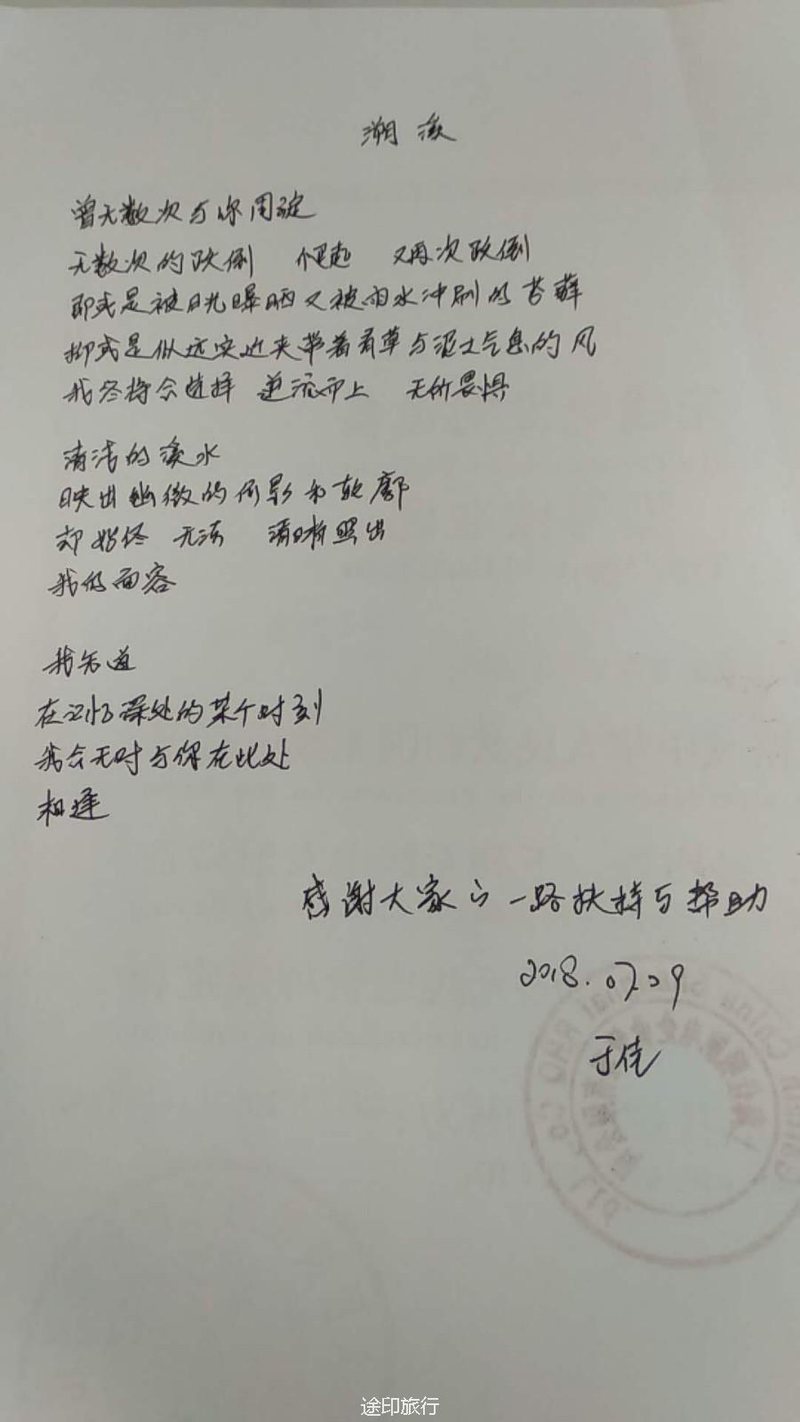 溯溪
曾无数次与你周旋
无数次的跌倒 爬起 又再次跌倒
即或是被日光曝晒又被雨水冲刷的苔藓
抑或是从远突近夹带着青草与泥土气息的风
我终将会选择 逆流而上 无所畏惧
清洁的溪水
映出幽微的倒影和轮廓
却始终 无法 清晰照出
我的面容
我知道
在记忆深处的某个时刻
我会无时与你在此处
相逢
感谢大家的一路扶持与帮助
2018.07.09
于佳
途印旅行